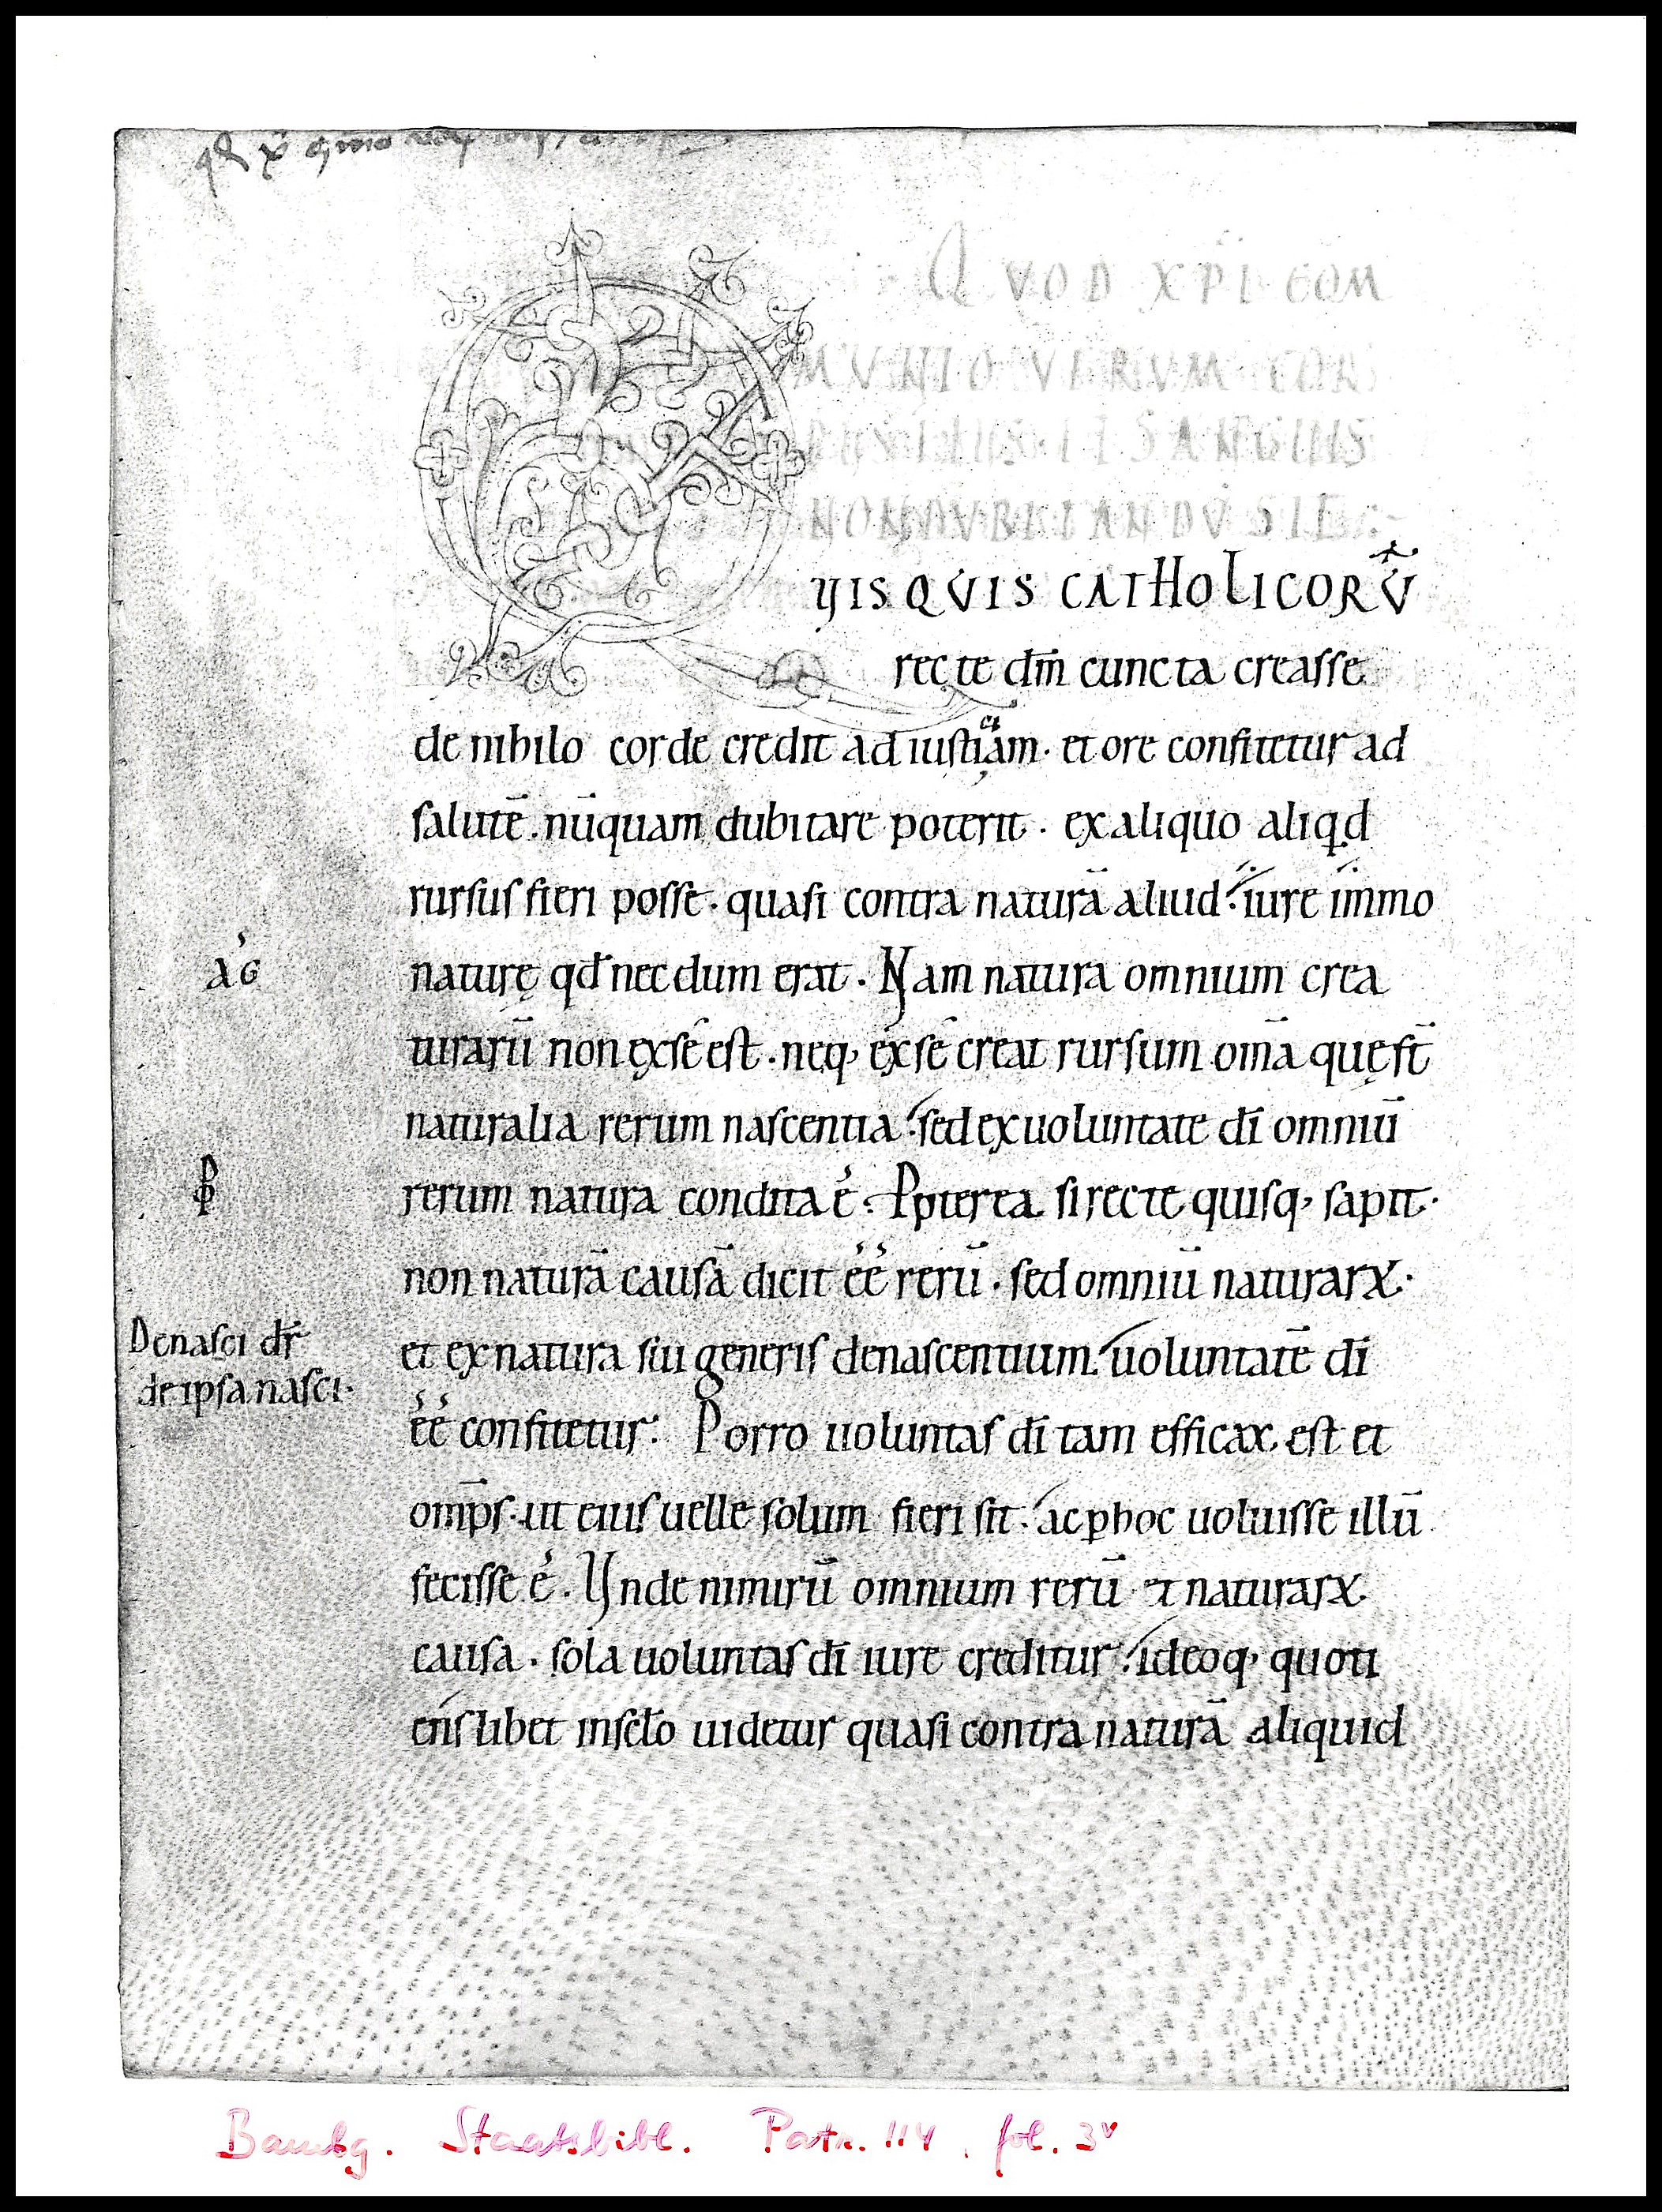 QVOD XPI COM
MVNIO VERVM COR
SANGVIS
NON DVBITANDV̄ SIT
QVISQVIS CATHOLICORV̄
recte dm̄ cuncta creasse
de nihilo corde credit ad iustitiam · et ore confitetur ad
salutē . nūquam dubitare poterit . ex aliquo aliq̣d
rursus fieri posse · quasi contra naturā aliud · iure immo
naturę qđ necdum erat . Nam natura omnium crea
AG
turarū non ex se est . neq; ex se creat rursum om̄a quę st̄
naturalia rerum nascentia · sed ex uoluntate dī omniū
rerum natura condita ē . Ppterea si recte quisq; sapit ·
non naturā causā dicit ēē rerū . sed omniū naturarꝝ ·
Denasci dr̄
de ipsa nasci ·
et ex natura sui generis denascentium · uoluntatē dī
ēē confitetur · Porro uoluntas dī tam efficax est et
omp̄s · ut eius uelle solum fieri sit · ac ꝑ hoc uoluisse illū
fecisse ē . Vnde nimirū omnium rerū et naturarꝝ
causa . sola uoluntas dī iure creditur · ideoq; quoti
ens libet in sc̄lo uidetur quasi contra naturā aliquid
Bambg. Staatsbibl. Patr. 114, fol. 3v